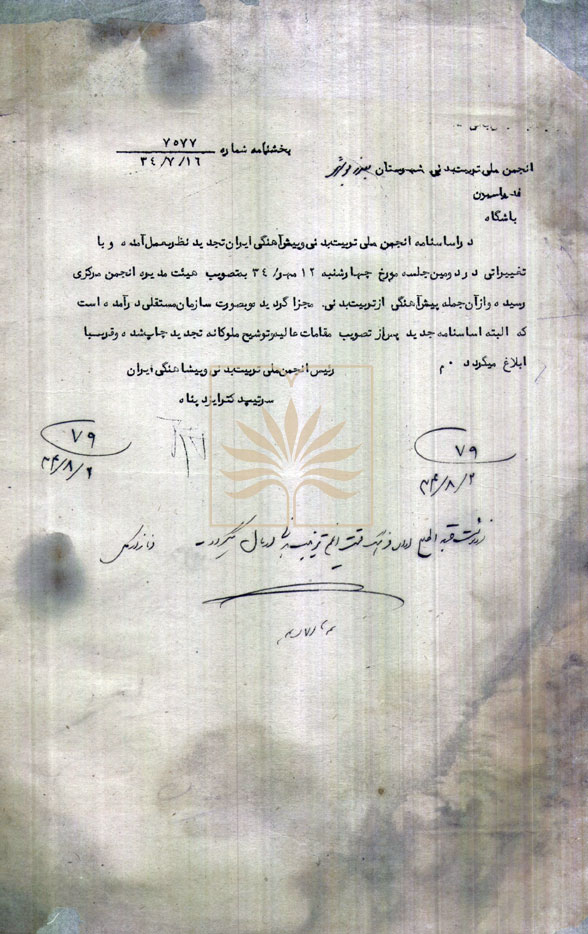 بخشنامه شماره ۷۵۷۷
۳۴/۷/۱۶
انجمن ملی تربیت بدنی شهرستان بندر بوشهر
فدراسیون
باشگاه
در اساسنامه انجمن ملی تربیت بدنی و پیش آهنگی ایران تجدید نظر بعمل آمده و با
تغییراتی در دومین جلسه مورخ چهارشنبه ۱۲ مهر/۳۴ بتصویب هیئت مدیره انجمن مرکزی
رسیده و از آن جمله پیش آهنگی از تربیت بدنی مجزا گردیده و بصورت سازمان مستقلی در آمده است
که البته اساسنامه جدید پس از تصویب مقامات عالیه و توشیح ملوکانه تجدید چاپ شده و قریبا
ابلاغ میگردد ۰م
رئیس انجمن ملی تربیت بدنی و پیشاهنگی ایران
سرتیپ دکتر ایزدپناه
۷۹
۳۴/۸/۲
۷۹
۳۴/۸/۲
رونوشت جهة اطلاع